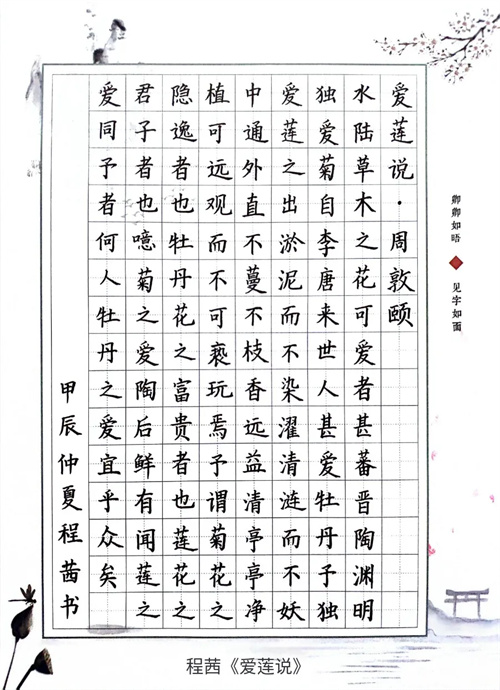 卿卿如晤 见字如面
爱莲说·周敦颐
水陆草木之花可爱者甚蕃晋陶渊明
独爱菊自李唐来世人甚爱牡丹予独
爱莲之出淤泥而不染濯清涟而不妖
中通外直不蔓不枝香远益清亭亭净
植可远观而不可亵玩焉予谓菊花之
隐逸者也牡丹花之富贵者也莲花之
君子者也噫菊之爱陶后鲜有闻莲之
爱同予者何人牡丹之爱宜乎众矣
甲辰仲夏程茜书
程茜《爱莲说》